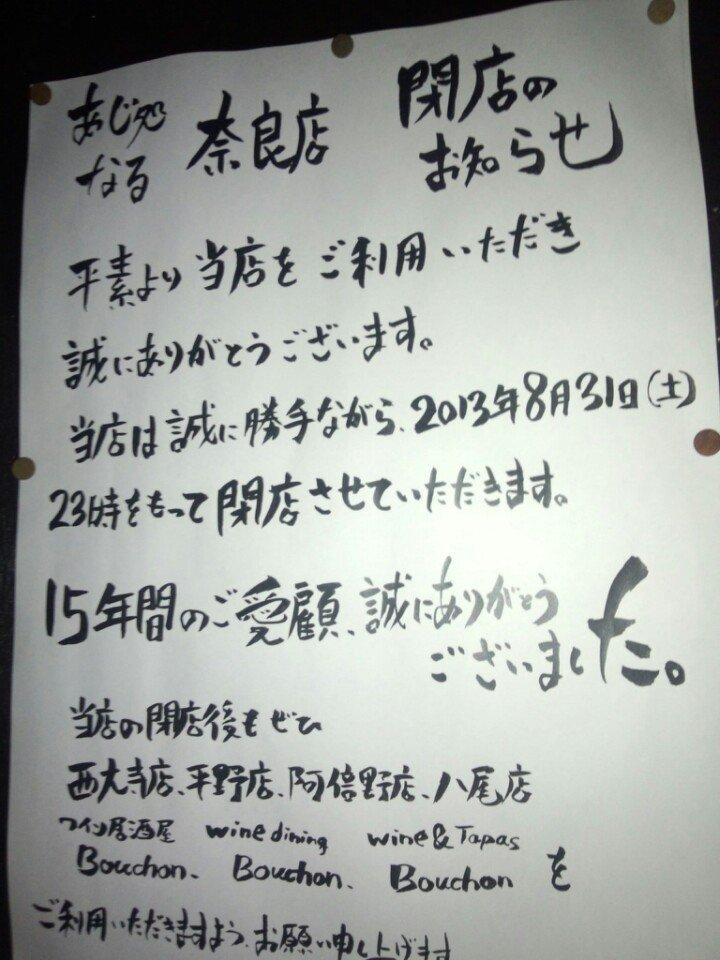 あじ処 なる 奈良店 閉店の お知らせ
平素より当店をご利用いただき
誠にありがとうございます。
当店は誠に勝手ながら、2013年8月31日(土)
23時をもって閉店させていただきます。
15年間のご愛顧、誠にありがとう
ございました。
当店の閉店後もぜひ
西大寺店、平野店、阿倍野店、八尾店
ワイン居酒屋 wine dining wine & Tapas
Bouchon、 Bouchon、 Bouchon を
ご利用いただきますよう、お願い申し上げます